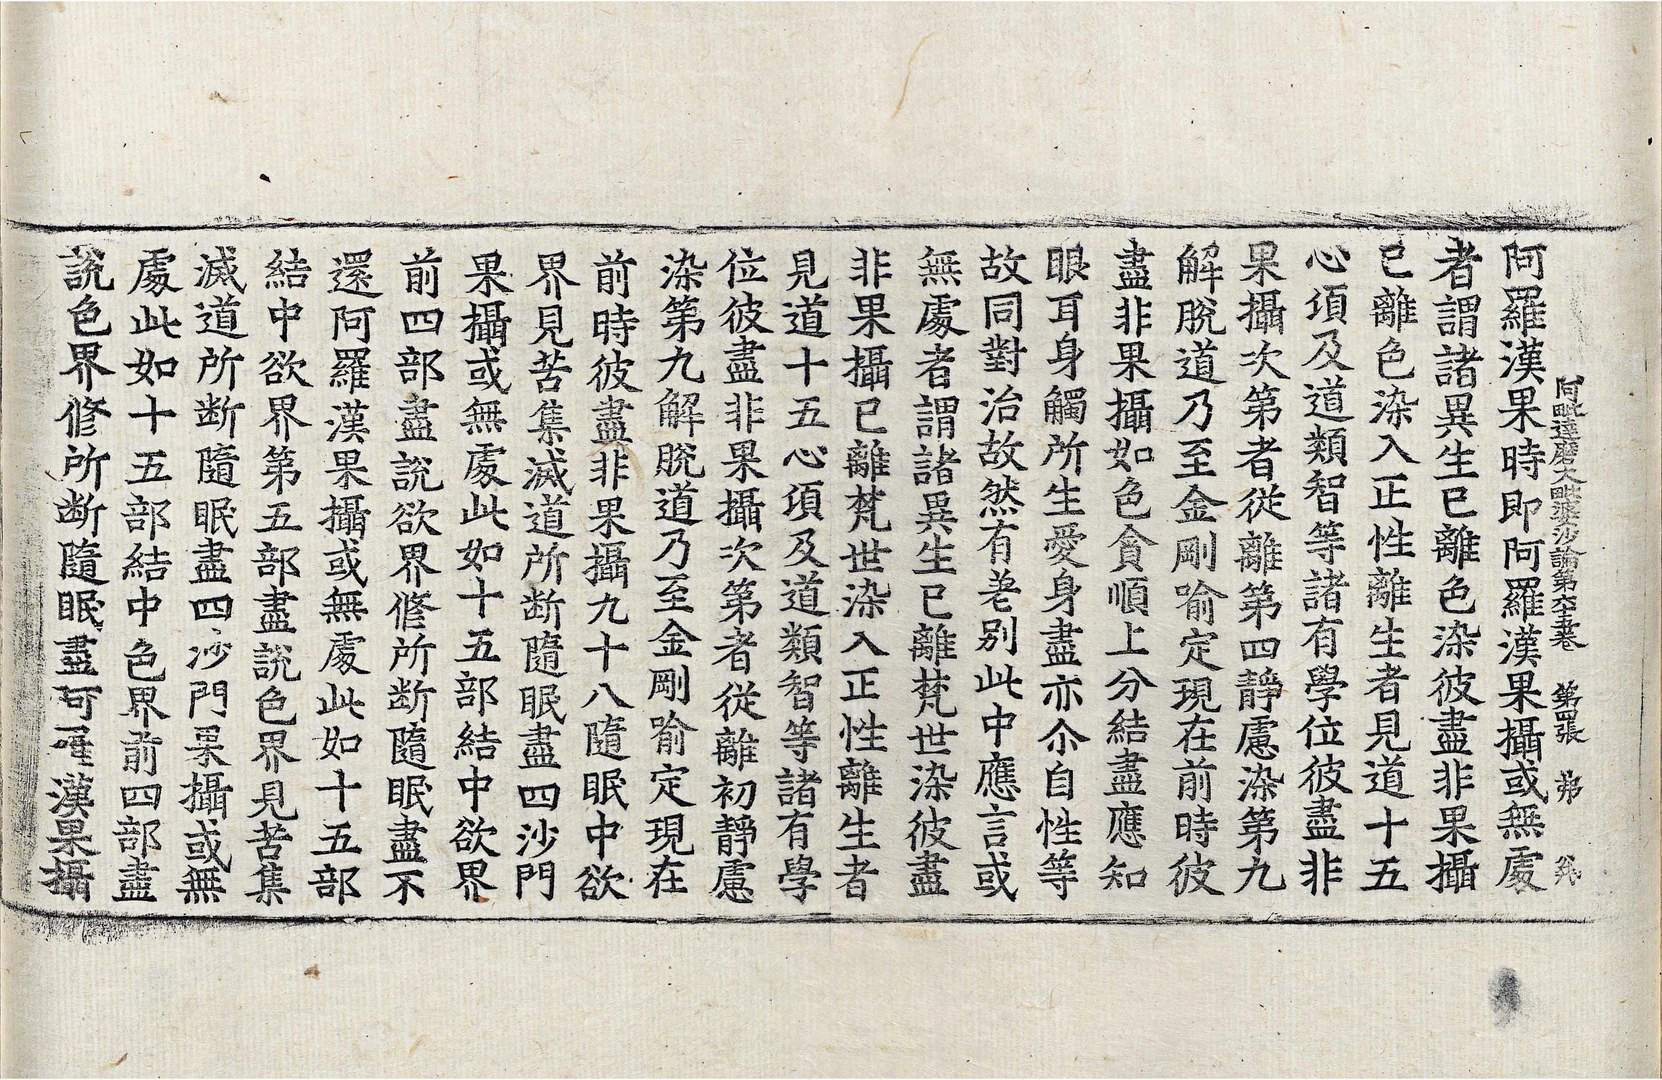 阿毗達磨大毗婆沙論第六十三卷 第四張 弗
阿羅漢果時即阿羅漢果攝或無處
者謂諸異生已離色染彼盡非果攝
已離色染入正性離生者見道十五
心項及道類智等諸有學位彼盡非
果攝次第者從離第四靜慮染第九
解脫道乃至金剛喻定現在前時彼
盡非果攝如色貪順上分結盡應知
眼耳身觸所生愛身盡亦尒自性等
故同對治故然有差别此中應言或
無處者謂諸異生已離梵世染彼盡
非果攝已離梵世染入正性離生者
見道十五心項及道類智等諸有學
位彼盡非果攝次第者從離初靜慮
染第九解脫道乃至金剛喻定現在
前時彼盡非果攝九十八隨眠中欲
界見苦集滅道所断隨眠盡四沙門
果攝或無處此如十五部結中欲界
前四部盡說欲界修所断隨眠盡不
還阿羅漢果攝或無處此如十五部
結中欲界第五部盡說色界見苦集
滅道所断隨眠盡四沙門果攝或無
處此如十五部結中色界前四部盡
說色界修所断隨眠盡阿羅漢果攝